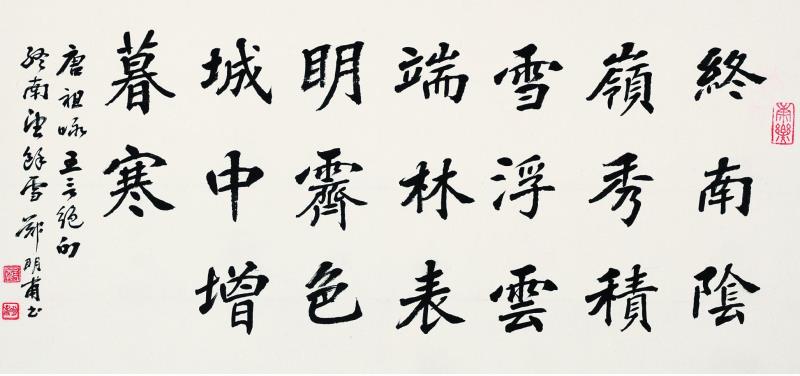 終南陰
嶺秀積
雪浮雲
端林表
明霽色
城中增
暮寒
唐祖咏五言絕句
終南望餘雪 鄭明甫书